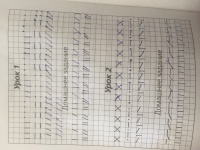 Урок 1
Домашнее задание
Урок 2
Домашнее задание